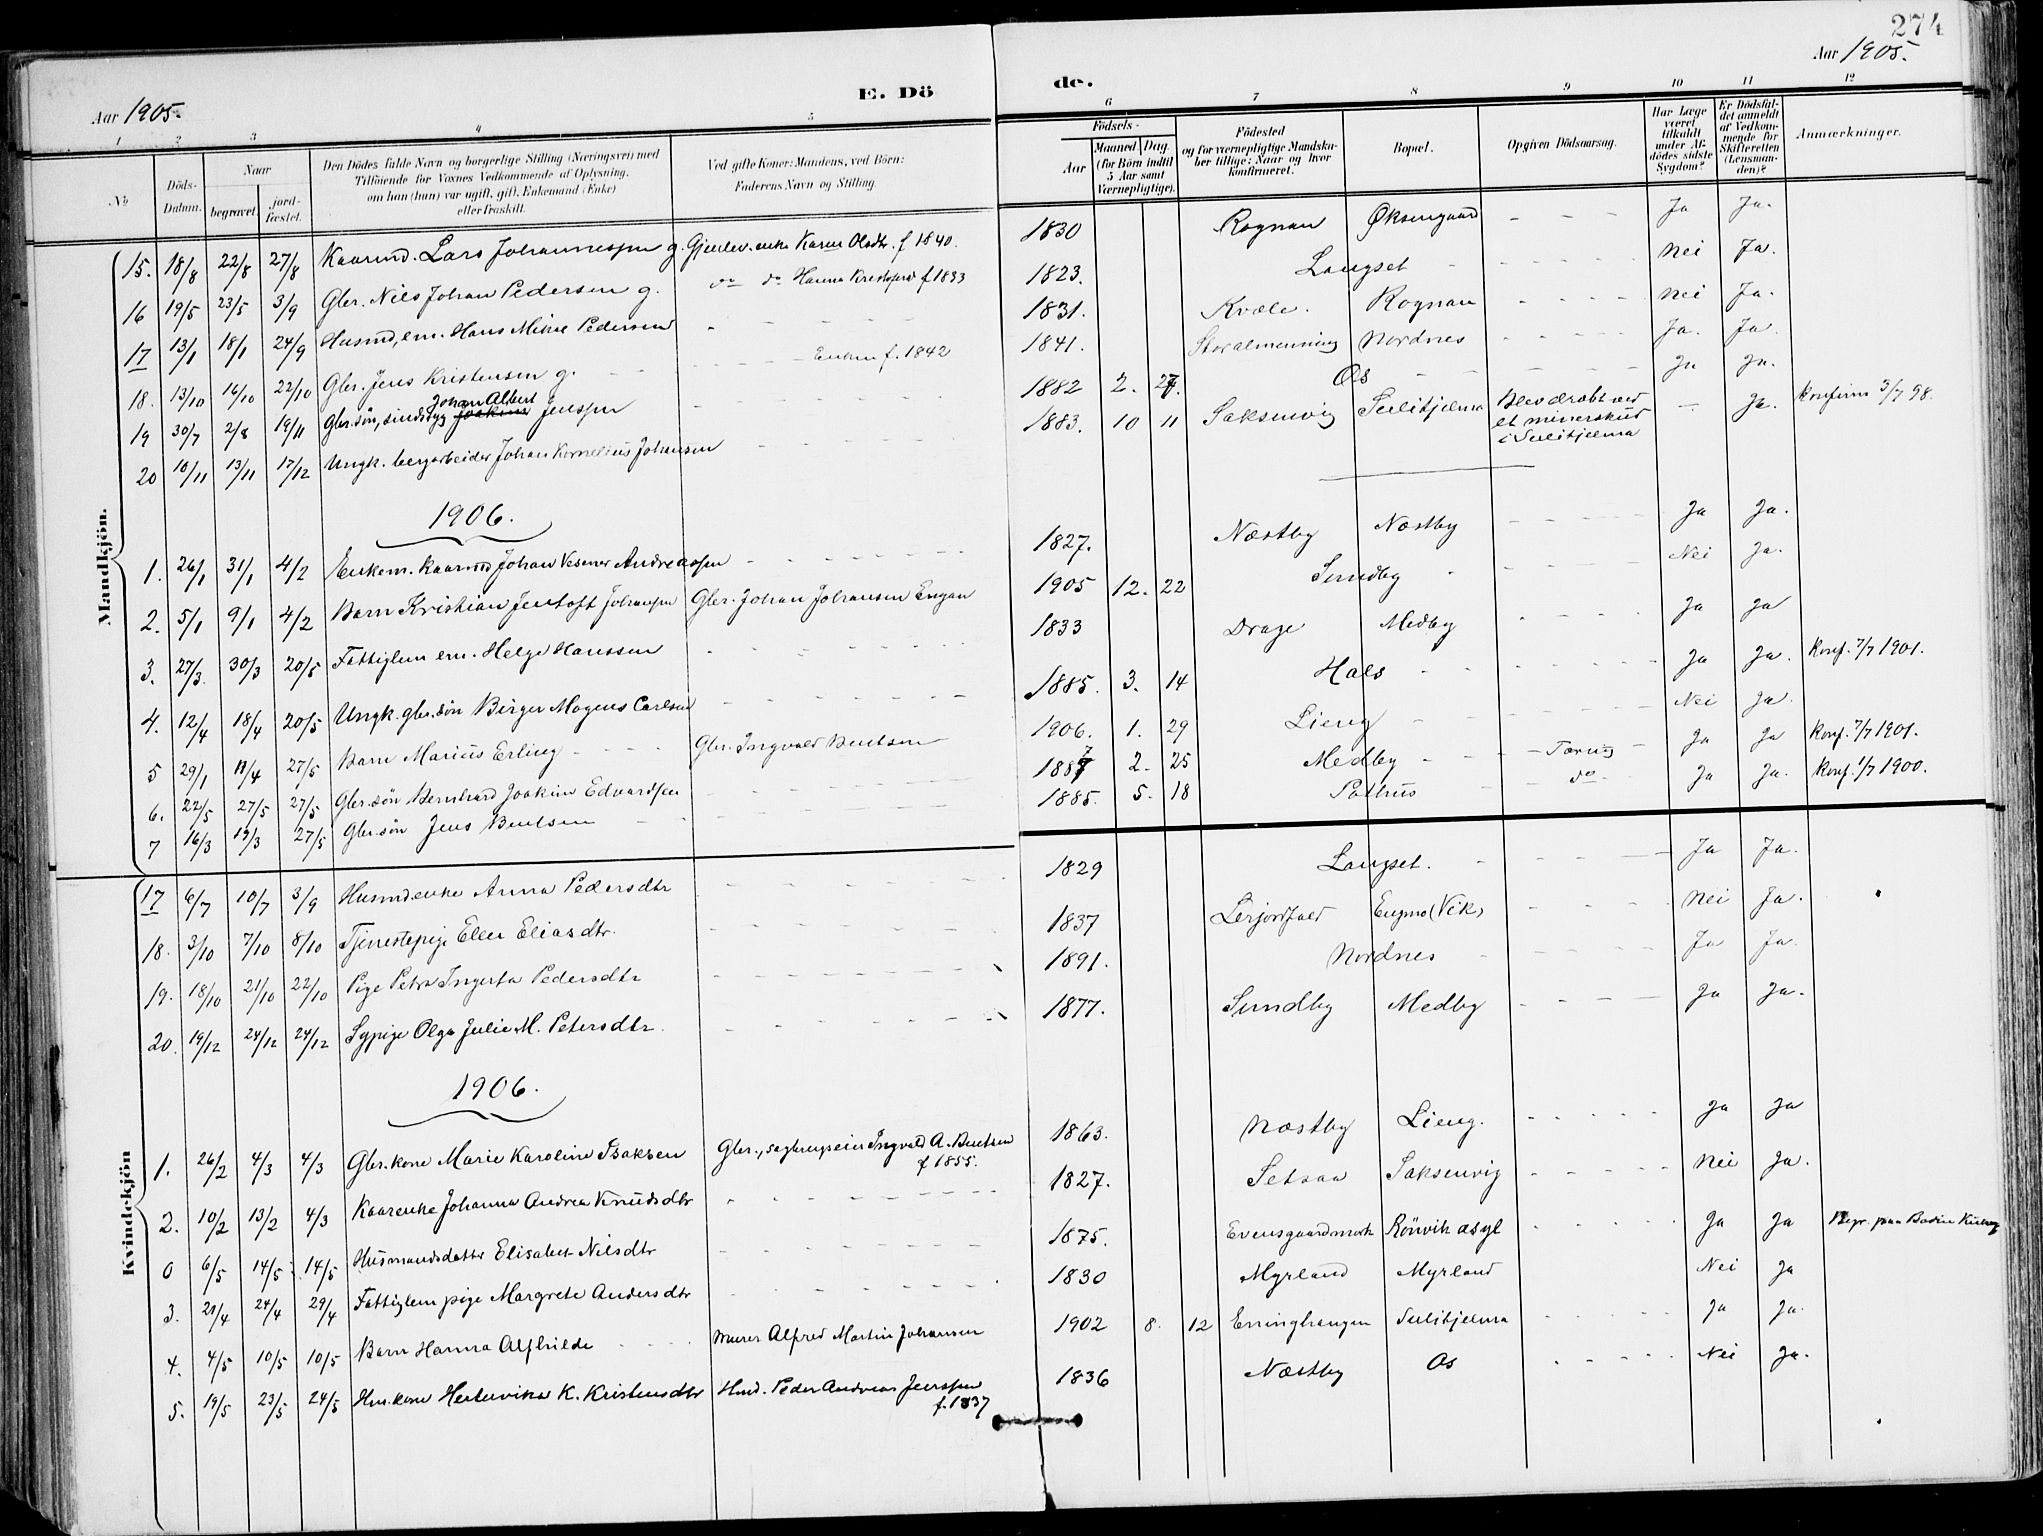 274
Aar 1905.
E. Dö de.
Aar 1905.
1 2 3 4 5 6 7 8 9 10 11 12
No
Döds-Datum.
Naar
begravet.
jord-fæstet.
Den Dödes fulde Navn og borgerlige Stilling (Næringsvei) med
Tilföiende for Voxnes Vedkommende af Oplysning,
om han (hun) var ugift, gift, Enkemand (Enke)
eller fraskilt.
Ved gifte Koner: Mandens, ved Börn:
Faderens Navn og Stilling.
Födsels-
Aar
Maaned Dag
(for Börn indtil
5 Aar samt
Værnepligtige).
Födested
og for værnepligtige Mandska-
ber tillige: Naar og hvor
konfirmeret.
Bopæl.
Opgiven Dödsaarsag.
Har Læge
været
tilkaldt
under Af-
dödes sidste
Sygdom?
Er Dödsfal-
det anmeldt
af Vedkom-
mende for
Skifteretten
(Lensman-
den)?
Anmærkninger.
Mandkjön.
15. 18/8 22/8 27/8 Kaarmd. Lars Johannessen g. Gjenlev. enke Karen Olsdtr. f 1840. 1830 Rognan Øksengaard - - - Ja Ja.
16 19/5 23/5 3/9 Gbr. Nils Johan Pedersen g. do do Hanna Kristofersd f 1833 1823. Langset - - - Nei Ja.
17 13/1 18/1 24/9 Husmd, em. Hans Mikal Pedersen - - - 1831. Kvæle. Rognan - - - Nei Ja.
18. 13/10 16/10 22/10 Gbr. Jens Kristensen g. - - - Enken f. 1842 1841. Storalmenning Nordnes - - - Ja. Ja.
19 30/7 2/8 19/11 Gbr.søn, sindssyg Johan Albert Joakim Jenssen - - - 1882 2. 27. Øs - - - Ja Ja.
20 10/11 13/11 17/12 Ungk. bergarbeider Johan Kornelius Johansen 1883. 10 11 Saksenvig Sulitjelma Blev dræbt ved
et minerskud
i Sulitjelma — Ja. Konfirm 3/7 98.
1906.
1. 26/1 31/1 4/2 Enkem. kaarmd Johan Vesener Andreassen - - - 1827. Næstby Næstby - - - Ja Ja.
2. 5/1 9/1 4/2 Barn Kristian Jentoft Johansen Gbr. Johan Johansen Engan 1905 12. 22 Sundby - - - Nei Ja.
3. 27/3. 30/3 20/5 Fattiglem em. Helge Hanssen - - - 1833 Drage Medby - - - Ja Ja
4. 12/4 18/4 20/5 Ungk. gbr.søn Birger Mogens Carlsen - - - 1885. 3. 14 Hals - - - Ja Ja. Konf. 7/7 1901.
5 29/1 11/4 27/5 Barn Marius Erling - - - Gbr. Ingvald Bentsen 1906. 1. 29 Lieng - - - Nei Ja.
6. 22/5 27/5 27/5 Gbr.søn Bernhard Joakim Edvardsen - - - 1887 2. 25 Medby - - - Tæring Ja Ja Konf. 7/7 1901.
7 16/3 19/3 27/5 Gbr.søn Jens Bentsen - - - 1885. 5. 18 Pothus - do - Ja Ja. Konf. 1/7 1900.
Kvindekjön
17 6/7 10/7 3/9 Husmd.enke Anna Pedersdtr - - - 1829 Langset. - - - Ja Ja.
18. 3/10 7/10 8/10 Tjenestepige Ellen Eliasdtr. - - - 1837 Lerjordfald Engmo (Vik) - - - Nei Ja.
19. 18/10 21/10 22/10 Pige Petra Ingerta Pedersdtr - - - 1891. Nordnes - Ja Ja.
20. 19/12 24/12 24/12 Sypige Olga Julie M. Petersdtr. - - - 1877. Sundby Medby - - - Ja Ja.
1906.
1. 26/2 4/3 4/3 Gbr.kone Marie Karoline Isaksen Gbr., sagbrugseier Ingvald A. Bentsen
f 1855. 1863. Næstby Lieng. - - - Ja Ja
2. 10/2 13/2 4/3 Kaarenke Johanna Andrea Knudsdtr - - - 1827. Setsaa Saksenvig - - - Nei Ja.
0 6/5 14/5 14/5 Husmandsdatter Elisabet Nilsdtr - - - 1875. Evensgaardmark Rönvik asyl - - - Ja Ja Begr. paa Bodin Kirkeg
3. 21/4 24/4 29/4 Fattiglem pige Margrete Andersdtr - - - 1830 Myrland Myrland Nei Ja
4. 4/5 10/5 10/5 Barn Hanna Alfhilde - - - Murer Alfred Martin Johansen 1902 8. 12 Sulitjelma - - - Ja Ja.
5. 19/5 23/5 24/5 Hm.kone Hertevika K. Kristensdtr Hmd. Peder Andreas Jenssen
f. 1837 1836 Næstby Os - - - Nei Ja.